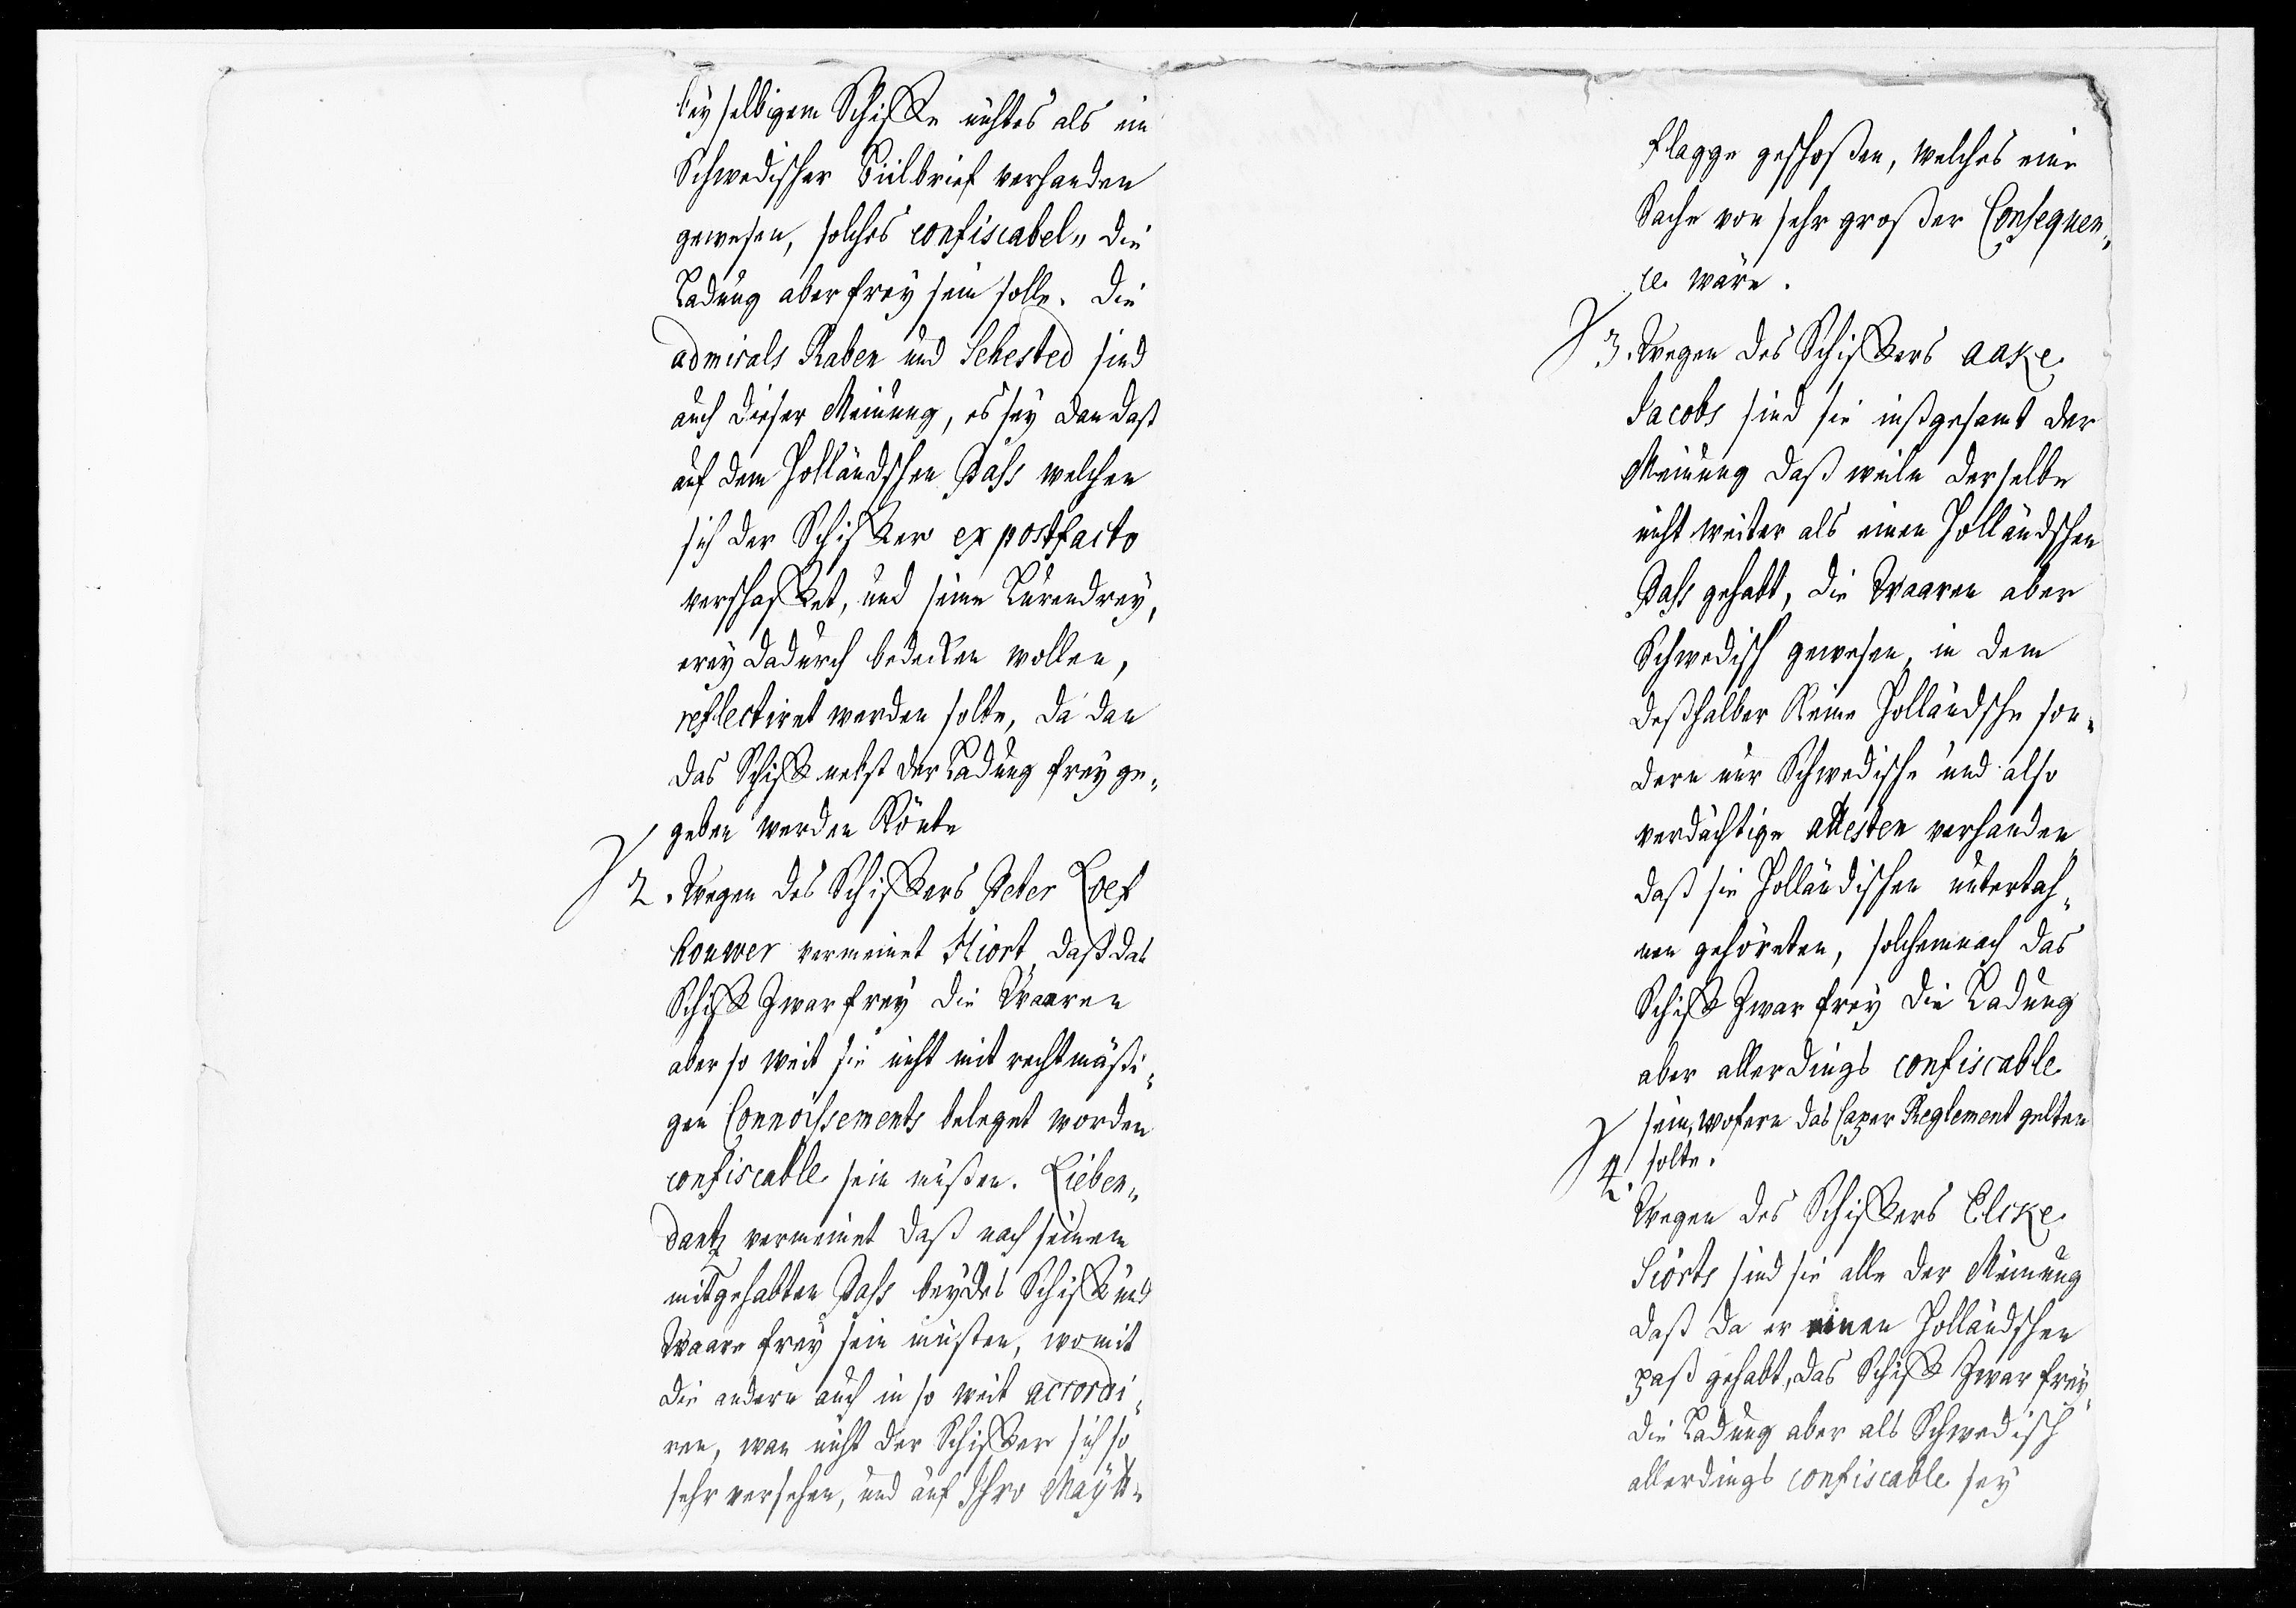 bey selbigem Schiffe nichtes als ein
Schwedischer Biilbrief verhanden
gewesen, solches confiscabel„ die
Ladung aber frey sein solle. Die
admirals Raben und Sehested sind
auch dieser Meinung, es sey dan daß
auf dem Holländschen Pass welchen
sich der Schiffer ex postfacto
verschaffet, und seine Lurendrey„
erey dadurch bedecken wollen,
reflectiret werden solte, da dan
das Schiff nebst der Ladung frey ge„
geben werden könte
2. Wegen des Schiffers Peter Loef
houwer vermeinet Hiort, daß das
Schiff zwar frey die Waaren
aber so weit sie nicht mit rechtmäßi„
gen Connoissements beleget worden
confiscable sein müßen. Lieben„
dantz vermeinet daß nach seinem
mitgehabten Pass beydes Schiff und
Waare frey sein müsten, womit
die andern auch in so weit accordi„
ren, wan nicht der Schiffer sich so
sehr versehen, und auf Ihro Maÿtt„
flagge geschoßen, welches eine
Sache von sehr großer Consequen„
ce wäre.
3. Wegen des Schiffers aake
Jacobs sind sie inßgesamt der
Meinung daß weiln derselbe
nicht weiter als einen Holländschen
Pass gehabt, die Waaren aber
Schwedisch gewesen, in dem
deßhalber keine Holländsche son„
dern nur Schwedische und also
verdächtige attesten verhanden,
daß sie Holländischen untertah„
nen gehöreten, solchemnach das
Schiff zwar frey die Ladung
aber allerdings confiscable
sein, wofern das Caper Reglement gelten
solte.
4. Wegen des Schiffers Elcke
Siörts sind sie alle der Meinung
daß da er einen Holländschen
paß gehabt, das Schiff zwar frey,
die Ladung aber als Schwedisch
allerdings confiscable sey